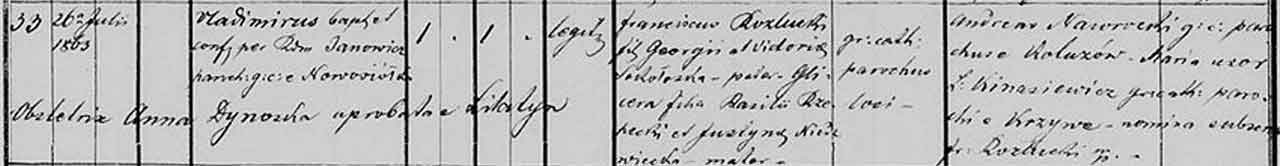 33 26ta Julii 1863 Vladimirus bapt et conf per Rdm Janowicz paroch: g: c: e 1 . 1 . legit
franciscus Kozłucki fil Georgii et Victoriæ - pater - Gli-
cera filia Basilii Rze-
pecki et Justyna
- mater -
gr: cath: parochus loci -
Andreas Naworocki g: c: paro-
chus e Koluzów - Maria uxor
L: Kinasiewicz gr: cath: paro-
chi e Krzywe - nomina subscr
fr: Kozłucki mp. -
Obstetrix Anna Dynoska aprobata e Litatyn